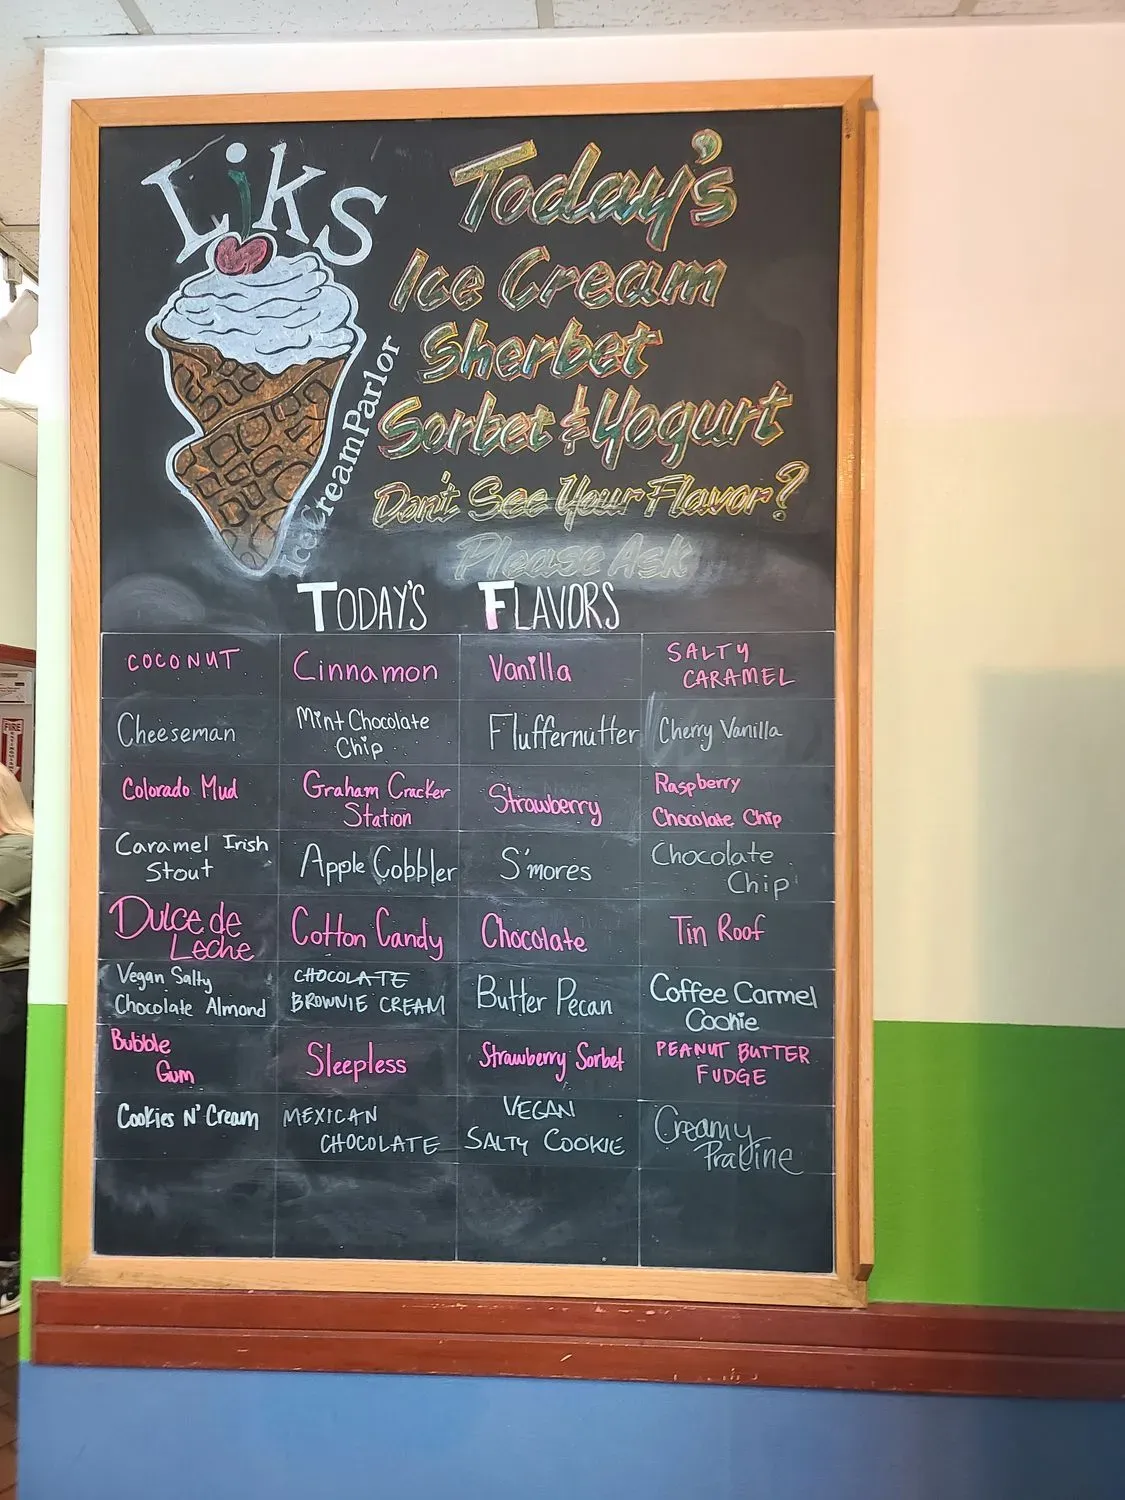 Liks
Ice Cream Parlor
Today's
Ice Cream
Sherbet
Sorbet & Yogurt
Don't See Your Flavor?
Please Ask
TODAY'S FLAVORS
COCONUT
Cinnamon
Vanilla
SALTY
CARAMEL
Cheeseman
Mint Chocolate
Chip
Fluffernutter
Cherry Vanilla
Colorado Mud
Graham Cracker
Station
Strawberry
Raspberry
Chocolate Chip
Caramel Irish
Stout
Apple Cobbler
S'mores
Chocolate
Chip
Dulce de
Leche
Cotton Candy
Chocolate
Tin Roof
Vegan Salty
Chocolate Almond
CHOCOLATE
BROWNIE CREAM
Butter Pecan
Coffee Carmel
Cookie
Bubble
Gum
Sleepless
Strawberry Sorbet
PEANUT BUTTER
FUDGE
Cookies N' Cream
MEXICAN
CHOCOLATE
VEGAN
SALTY COOKIE
Creamy
Praline
FIRE